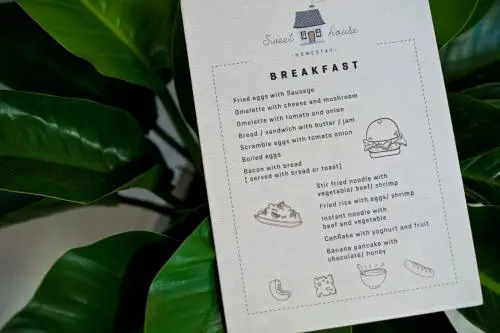 Sweet house
HOMESTAY
BREAKFAST
Fried eggs with Sausage
Omelette with cheese and mushroom
Omelette with tomato and onion
Bread / sandwich with butter / jam
Scramble eggs with tomato onion
Boiled eggs
Bacon with bread
[ served with bread or toast]
Stir fried noodle with
vegetable/ beef/ shrimp
Fried rice with eggk/ shrimp
Instant noodle with
beef and vegetable
Cornflake with yoghurt and fruit
Banana pancake with
chocolate/ honey